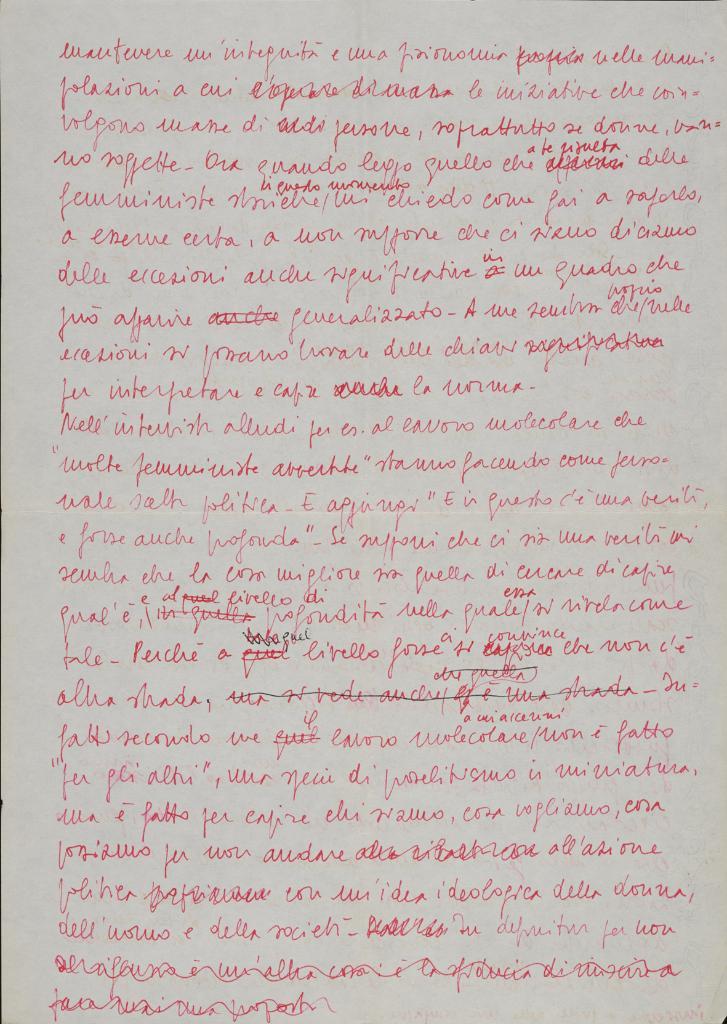 mantenere un'integrità e una fisionomia propria nelle mani=
polazioni a cui le iniziative che coin=
volgono masse di persone, soprattutto se donne, van=
no soggette - Ora quando leggo quello che a te risulta delle
femministe storiche / in questo momento mi chiedo come fai a saperlo,
a esserne certa, a non supporre che ci siano diciamo
delle eccezioni anche significative in un quadro che
può apparire anche generalizzato - A me sembra che / proprio nelle
eccezioni si possano trovare delle chiavi significative
per interpretare e capire anche la norma -
Nell'intervista alludi per es. al lavoro molecolare che
"molte femministe avvertite" stanno facendo come perso=
nale scelta politica - E aggiungi "E in questo c'è una verità,
e forse anche profonda" - Se supponi che ci sia una verità mi
sembra che la cosa migliore sia quella di cercare di capire
qual'è, e al quel livello di in quella profondità nella quale / essa si rivela come
tale - Perché a quel livello forse ci si convince che non c'è
altra strada, ma si vede anche / che quella è una strada - In=
fatti secondo me quel il lavoro molecolare / a cui accenni non è fatto
"per gli altri", una specie di proselitismo in miniatura,
ma è fatto per capire chi siamo, cosa vogliamo, cosa
possiamo per non andare all'azione
politica con un'idea ideologica della donna,
dell'uomo e della società - In definitiva per non
è un'altra cosa: è la fiducia di riuscire a
fare una proposta